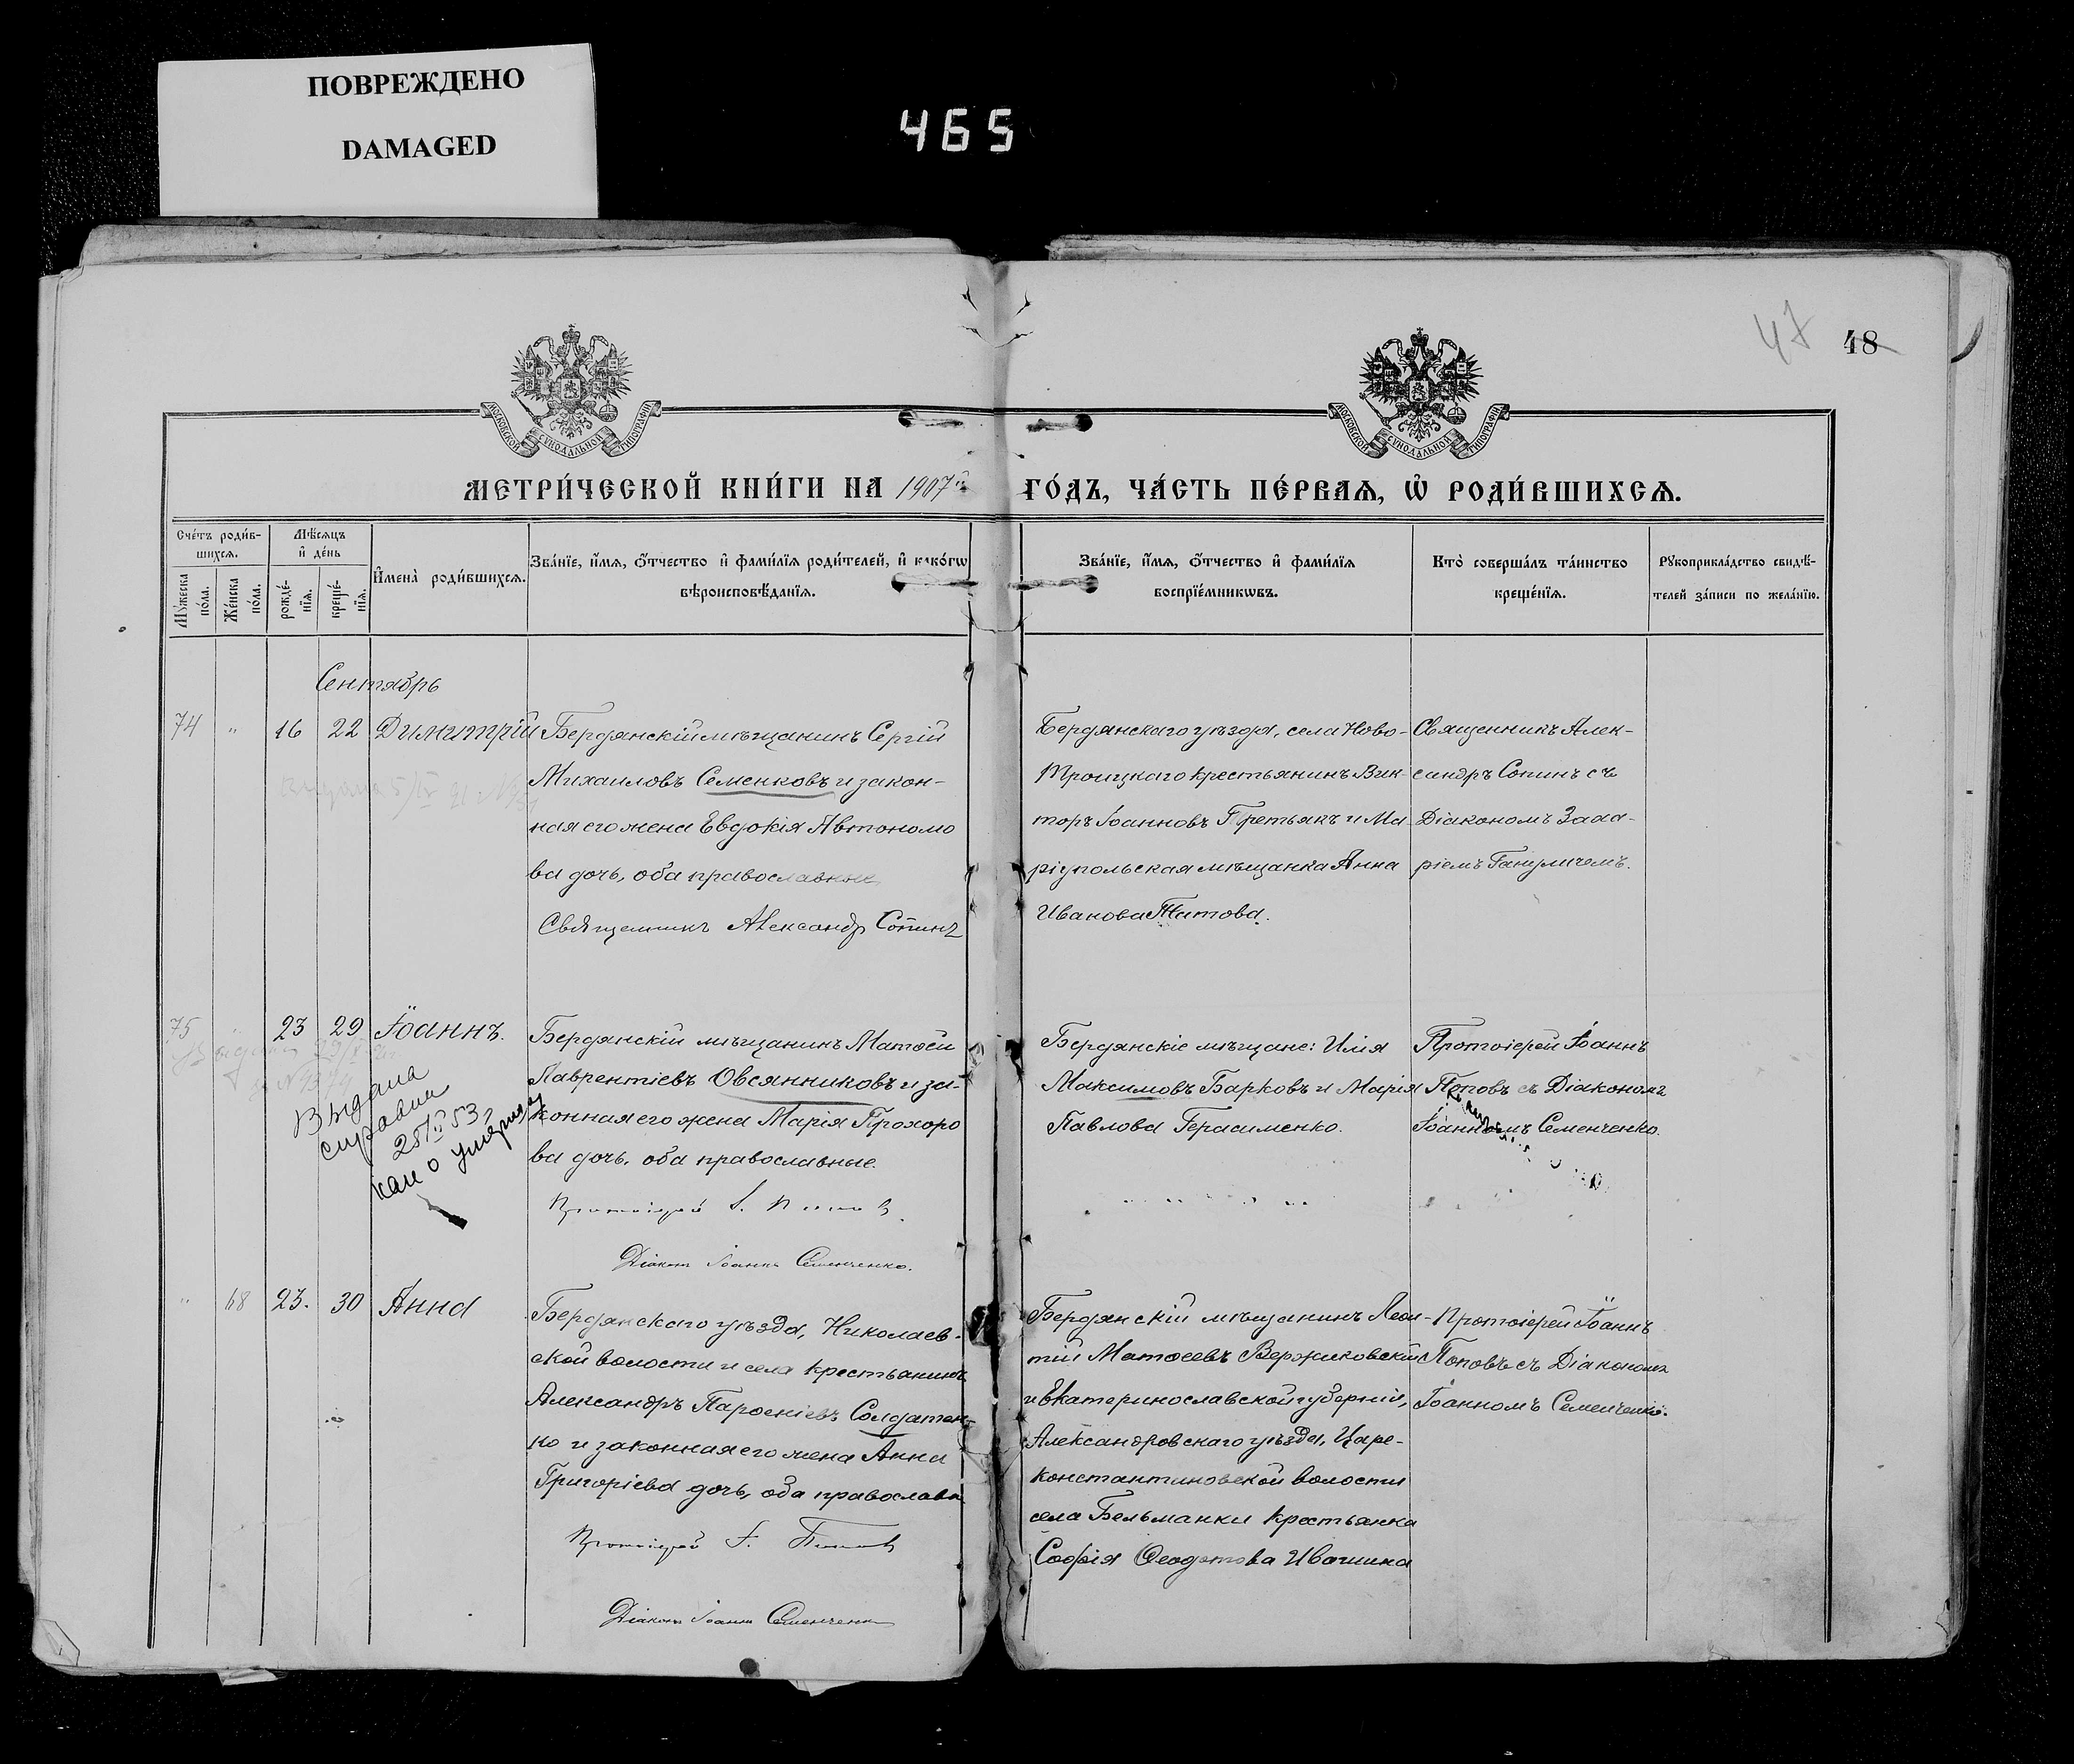 ПОВРЕЖДЕНО
DAMAGED
465
47 48
МОСКОВСКОЙ СѴНОДАЛЬНОЙ ТИПОГРАФІИ
МОСКОВСКОЙ СѴНОДАЛЬНОЙ ТИПОГРАФІИ
МЕТРИ́ЧЕСКОЙ КНИ́ГИ НА 1907й ГО́ДЪ, ЧА́СТЬ ПЕ́РВАѦ, Ѡ҆ РОДИ́ВШИХСѦ.
Сче́тъ роди́в-
шихсѧ.
Мѣ́сѧцъ
и҆ де́нь
Мꙋ́жеска
по́ла.
Же́нска
по́ла.
рожде́-
нїѧ.
креще́-
нїѧ.
И҆мена̀ роди́вшихсѧ.
Зва́нїе, и҆́мѧ, ѻ҆́тчество и҆ фами́лїѧ роди́телей, и҆ како́гѡ
вѣроисповѣ́данїѧ.
Зва́нїе, и҆́мѧ, ѻ҆́тчество и҆ фами́лїѧ
воспрїе́мникѡвъ.
Кто̀ соверша́лъ та́инство
креще́нїѧ.
Рꙋкоприкла́дство свидѣ́-
телей за́писи по жела́нїю.
Сентябрь
74 " 16 22 Димитрій
Бердянскій мѣщанинъ Сергій
Михаиловъ Семенковъ и закон-
ная его жена Евдокія Автономо
ва дочь, оба православные
Священникъ Александръ Сопинъ
Бердянскаго уѣзда, села Ново-
Троицкаго крестьянинъ Вик-
торъ Іоанновъ Третьякъ и Ма
ріупольская мѣщанка Анна
Иванова Титова.
Священникъ Алек-
сандръ Сопинъ съ
Діакономъ Заха-
ріемъ Гануличемъ.
75 " 23 29 Іоаннъ.
Выдана
справка
28/II 53 г
Бердянскій мѣщанинъ Матѳей
Лаврентіевъ Овсянниковъ и за-
конная его жена Марія Прохоро
ва дочь, оба православные.
Протоіерей І. Поповъ.
Діаконъ Іоаннъ Семенченко.
Бердянскіе мѣщане: Илія
Максимовъ Барковъ и Марія
Павлова Герасименко.
Протоіерей Іоаннъ
Поповъ съ Діакономъ
Іоанномъ Семенченко.
" 68 23. 30 Анна
Бердянскаго уѣзда, Николаев-
ской волости и села крестьянинъ
Александръ Парѳеніевъ Солдатен-
ко и законная его жена Анна
Григоріева дочь, оба православн
Протоіерей І. Поповъ
Діаконъ Іоаннъ Семенченко
Бердянскій мѣщанинъ Леон-
тій Матѳеевъ Вержиковскій
и Екатеринославской губерніи,
Александровскаго уѣзда, Царе-
константиновской волости
села Бельманки крестьянка
Софія Ѳеодотова Ивашина
Протоіерей Іоаннъ
Поповъ съ Діакономъ
Іоанномъ Семенченко.